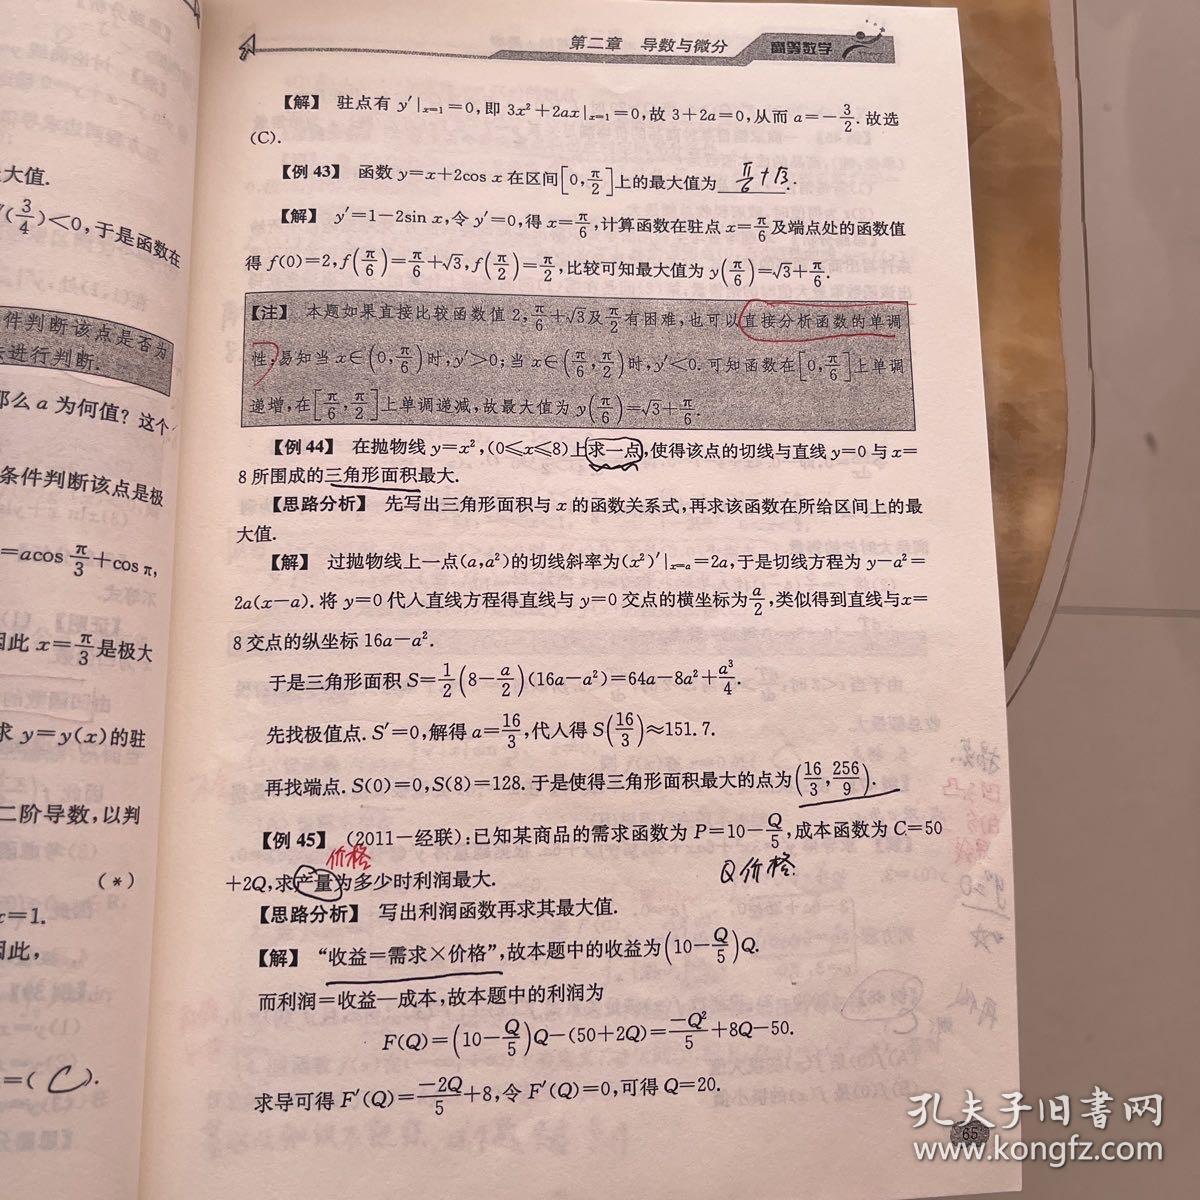 第二章 导数与微分 高等数学
【解】 驻点有 y′|x=1=0,即 3x²+2ax|x=1=0,故 3+2a=0,从而 a=-3/2.故选
(C).
【例 43】 函数 y=x+2cos x 在区间[0,π/2]上的最大值为 π/6+√3.
【解】 y′=1-2sin x,令 y′=0,得 x=π/6,计算函数在驻点 x=π/6及端点处的函数值
得 f(0)=2,f(π/6)=π/6+√3,f(π/2)=π/2,比较可知最大值为 y(π/6)=√3+π/6.
【注】 本题如果直接比较函数值 2,π/6+√3及π/2有困难,也可以直接分析函数的单调
性,易知当 x∈(0,π/6)时,y′>0;当 x∈(π/6,π/2)时,y′<0.可知函数在[0,π/6]上单调
递增,在[π/6,π/2]上单调递减,故最大值为 y(π/6)=√3+π/6.
【例 44】 在抛物线 y=x²,(0≤x≤8)上求一点,使得该点的切线与直线 y=0 与 x=
8 所围成的三角形面积最大.
【思路分析】 先写出三角形面积与 x 的函数关系式,再求该函数在所给区间上的最
大值.
【解】 过抛物线上一点(a,a²)的切线斜率为(x²)′|x=a=2a,于是切线方程为 y-a²=
2a(x-a).将 y=0 代人直线方程得直线与 y=0 交点的横坐标为a/2,类似得到直线与x=
8 交点的纵坐标 16a-a².
于是三角形面积 S=1/2(8-a/2)(16a-a²)=64a-8a²+a³/4.
先找极值点.S′=0,解得 a=16/3,代人得 S(16/3)≈151.7.
再找端点.S(0)=0,S(8)=128.于是使得三角形面积最大的点为(16/3,256/9).
【例 45】 (2011一经联):已知某商品的需求函数为 P=10-Q/5,成本函数为 C=50
价格
Q价格
+2Q,求产量为多少时利润最大.
【思路分析】 写出利润函数再求其最大值.
【解】 “收益=需求×价格”,故本题中的收益为(10-Q/5)Q.
而利润=收益一成本,故本题中的利润为
F(Q)=(10-Q/5)Q-(50+2Q)=-Q²/5+8Q-50.
求导可得 F′(Q)=-2Q/5+8,令 F′(Q)=0,可得 Q=20.
65
大值.
″(3/4)<0,于是函数在
件判断该点是否为
去进行判断.
那么 a 为何值?这个
条件判断该点是极
=acos π/3+cos π,
因此 x=π/3是极大
求 y=y(x)的驻
二阶导数,以判
(*)
x=1.
因此,
=( C ).
孔夫子旧书网
www.kongfz.com